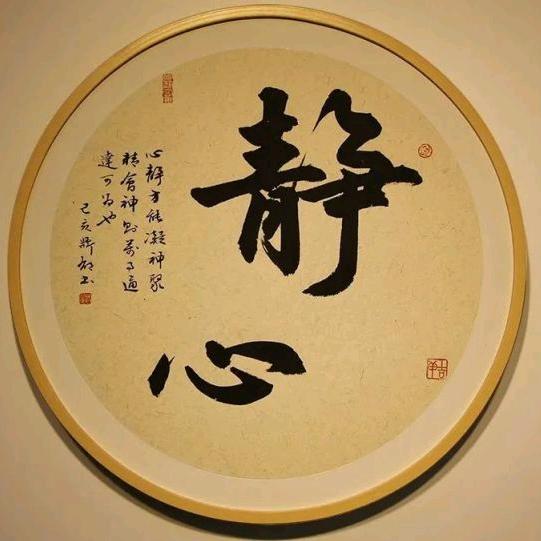 靜心
心靜方能凝神聚
精會神則萬事通
達可為也
己亥